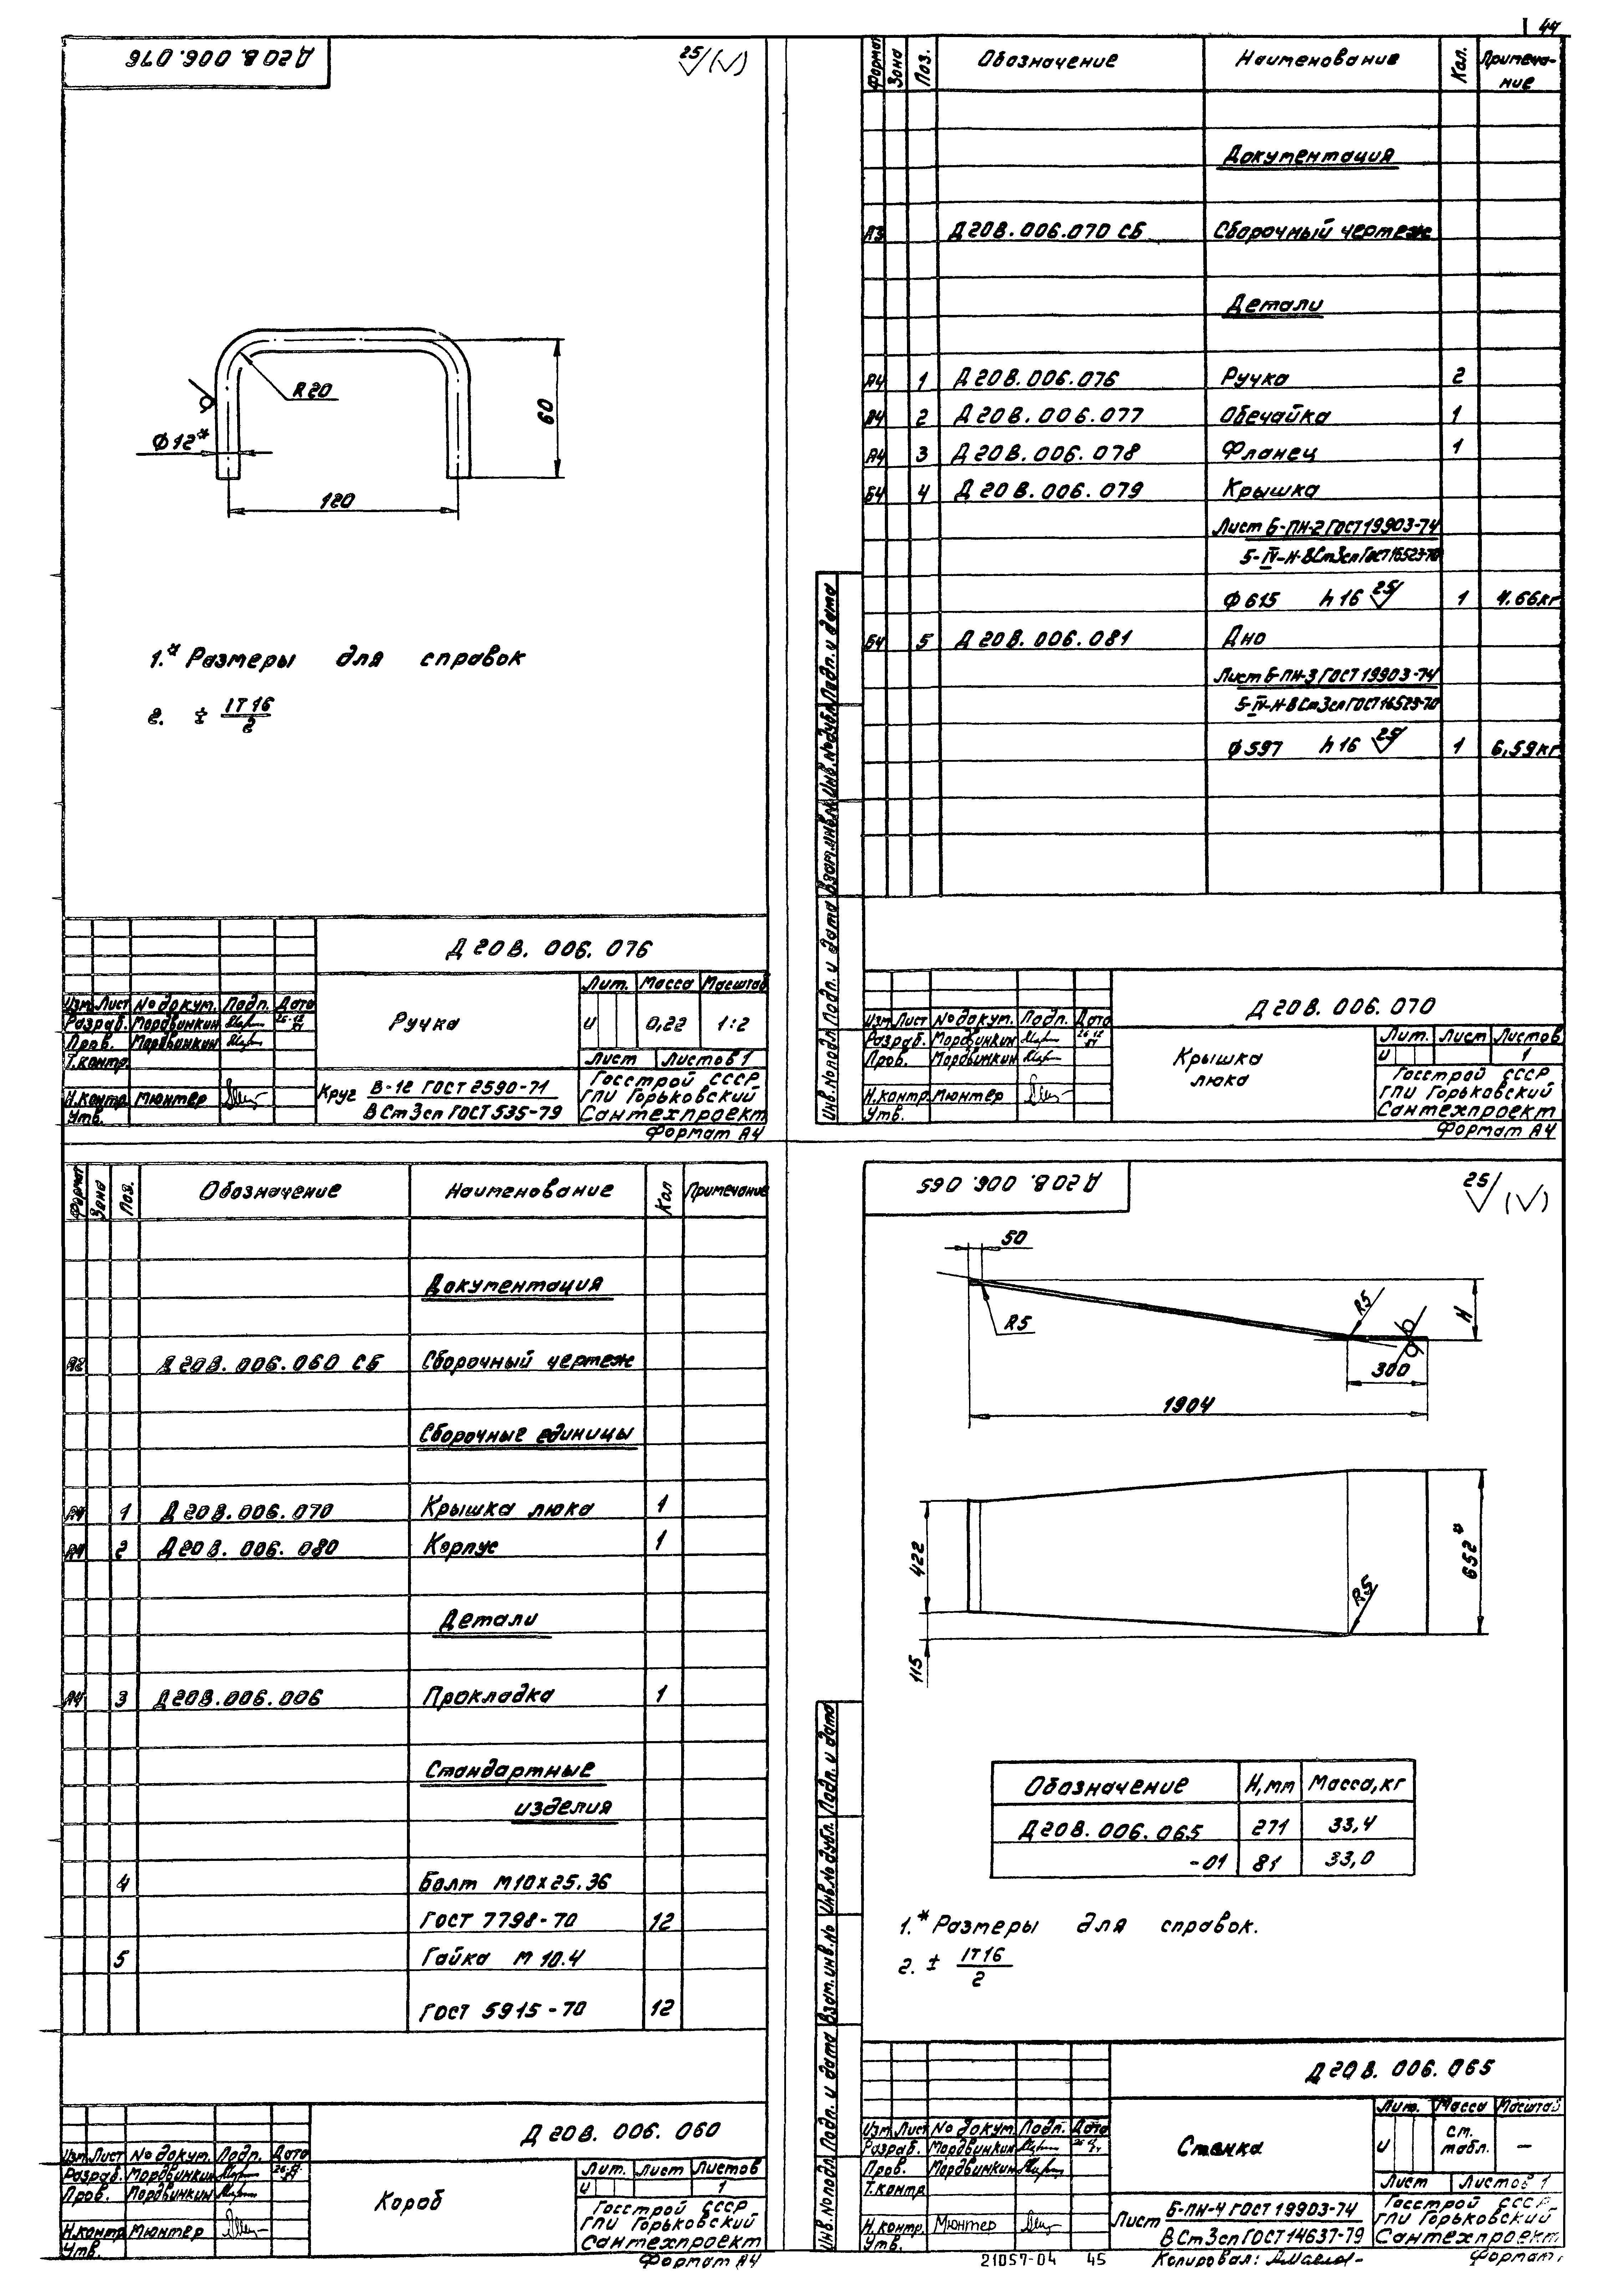 44
Д20В.006.076
25/(√)
R20
60
Ф12*
120
1.* Размеры для справок
2. ± IT16/2
Д20В.006.076
Изм Лист № докум. Подп. Дата
Разраб. Мордвинкин
Пров. Мордвинкин
Т.контр.
Н.контр. Мюнтер
Утв.
Ручка
Лит. Масса Масштаб
И 0,22 1:2
Лист Листов 1
Круг В-12 ГОСТ 2590-71
ВСт3сп ГОСТ 535-79
Госстрой СССР
ГПИ Горьковский
Сантехпроект
Формат А4
Формат Зона Поз. Обозначение Наименование Кол. Примечание
Документация
А3 Д20В.006.070 СБ Сборочный чертеж
Детали
А4 1 Д20В.006.076 Ручка 2
А4 2 Д20В.006.077 Обечайка 1
А4 3 Д20В.006.078 Фланец 1
Б4 4 Д20В.006.079 Крышка
Лист Б-ПН-2 ГОСТ 19903-74
5-IV-Н-ВСт3сп ГОСТ 16523-70
Ф615 h16 25/ 1 4.66кг
Б4 5 Д20В.006.081 Дно
Лист Б-ПН-3 ГОСТ 19903-74
5-IV-Н-ВСт3сп ГОСТ 16523-70
Ф597 h16 25/ 1 6,59кг
Инв.№подл. Подп. и дата Взам.инв.№ Инв.№дубл. Подп. и дата
Д20В.006.070
Изм Лист № докум. Подп. Дата
Разраб. Мордвинкин
Пров. Мордвинкин
Н.контр. Мюнтер
Утв.
Крышка
люка
Лит. Лист Листов
И 1
Госстрой СССР
ГПИ Горьковский
Сантехпроект
Формат А4
Формат Зона Поз. Обозначение Наименование Кол Примечание
Документация
А2 Д20В.006.060 СБ Сборочный чертеж
Сборочные единицы
А4 1 Д20В.006.070 Крышка люка 1
А4 2 Д20В.006.080 Корпус 1
Детали
А4 3 Д20В.006.006 Прокладка 1
Стандартные
изделия
4 Болт М10х25.36
ГОСТ 7798-70 12
5 Гайка М10.4
ГОСТ 5915-70 12
Д20В.006.060
Изм Лист № докум. Подп. Дата
Разраб. Мордвинкин
Пров. Мордвинкин
Н.контр. Мюнтер
Утв.
Короб
Лит. Лист Листов
И 1
Госстрой СССР
ГПИ Горьковский
Сантехпроект
Формат А4
Д20В.006.065
25/(√)
50
R5
R5
H
300
1904
422
115
R5
652*
Обозначение Н,мм Масса,кг
Д20В.006.065 271 33,4
-01 81 33,0
1.* Размеры для справок.
2. ± IT16/2
Инв.№подл. Подп. и дата Взам.инв.№ Инв.№дубл. Подп. и дата
Д20В.006.065
Изм Лист № докум. Подп. Дата
Разраб. Мордвинкин
Пров. Мордвинкин
Т.контр
Н.контр. Мюнтер
Утв.
Стенка
Лит. Масса Масштаб
И см. табл. —
Лист Листов 1
Лист Б-ПН-4 ГОСТ 19903-74
ВСт3сп ГОСТ 14637-79
Госстрой СССР
ГПИ Горьковский
Сантехпроект
21057-04 45 Копировал: Формат